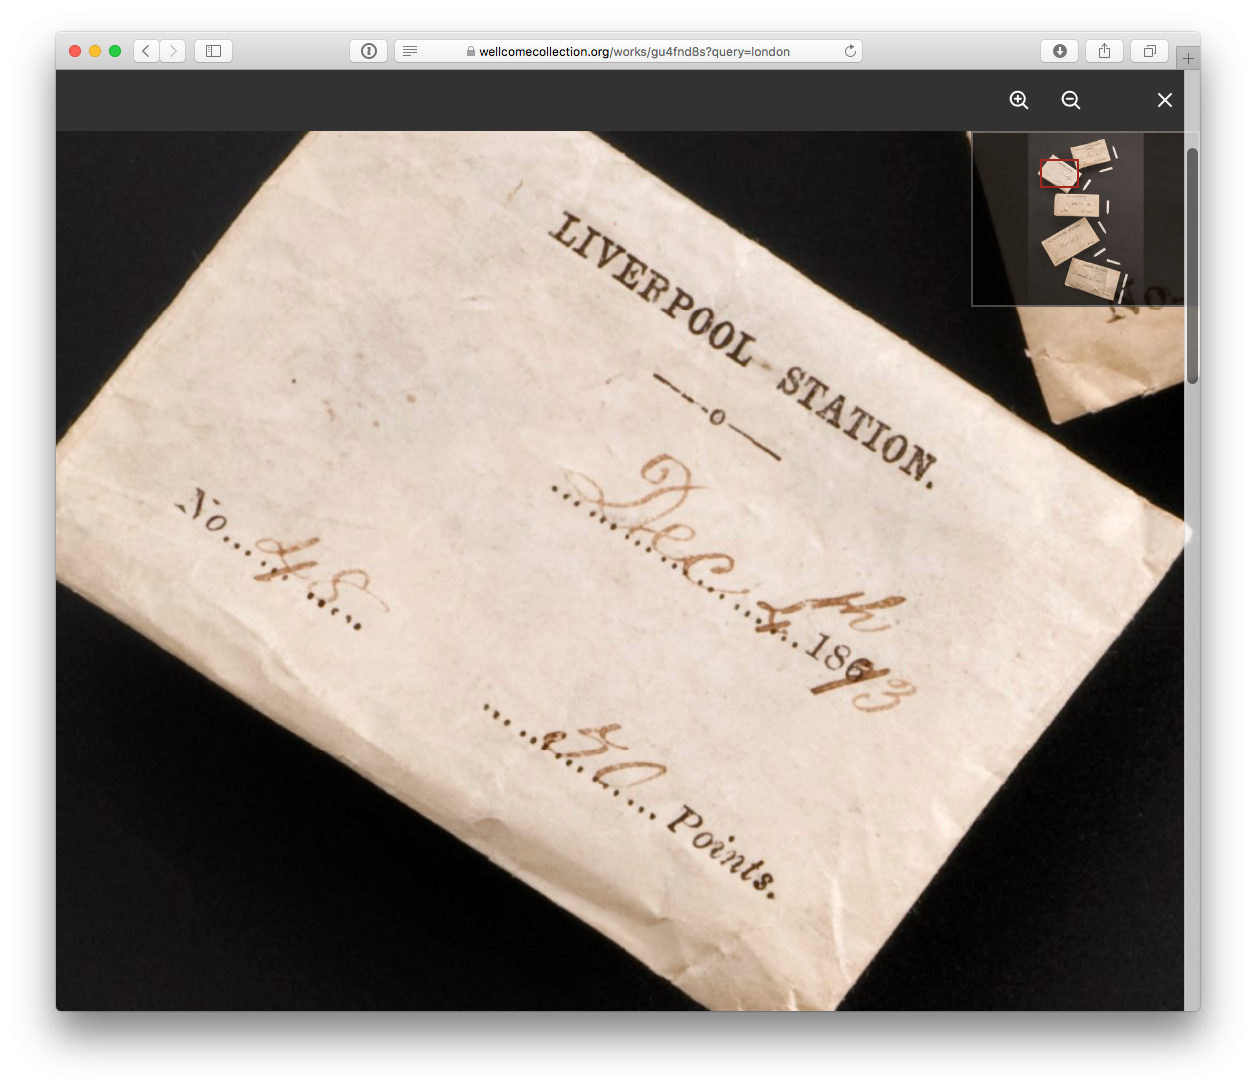 wellcomecollection.org/works/gu4fnd8s?query=london
LIVERPOOL STATION.
o
Dec 4th 1873
No. 48
50 Points.
No.